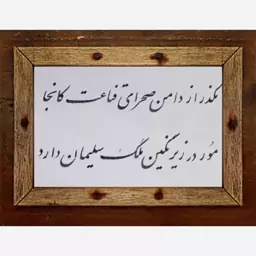 مگذر از دامن صحرای قناعت کانجا
مور در زیر نگین ملک سلیمان دارد